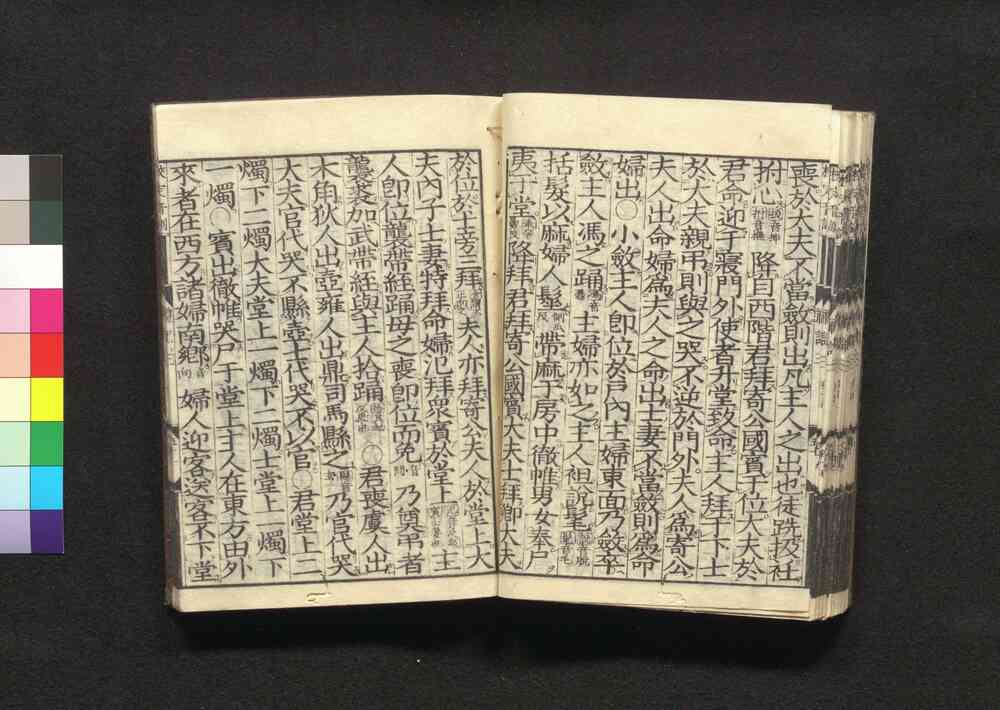 喪於大夫不當斂則出凡主人之出也徒跣扱衽
拊心降自西階君拜寄公國賓于位大夫於
君命迎于寢門外使者升堂致命主人拜于下士
於大夫親弔則與之哭不逆於門外夫人爲寄公
夫人出命婦爲夫人之命出士妻不當斂則爲命
婦出○小斂主人即位於戶內主婦東面乃斂卒
斂主人馮之踊主婦亦如之主人袒說髦
括髮以麻婦人髽帶麻于房中徹帷男女奉尸
夷于堂降拜君拜寄公國賓大夫士拜卿大夫
於位於士旁三拜夫人亦拜寄公夫人於堂上大
夫內子士妻特拜命婦氾拜衆賓於堂上主
人即位襲帶絰踊母之喪即位而免乃奠弔者
襲裘加武帶絰與主人拾踊○君喪虞人出
木角狄人出壺雍人出鼎司馬縣之乃官代哭
大夫官代哭不縣壺士代哭不以官○君堂上二
燭下二燭大夫堂上一燭下二燭士堂上一燭下
一燭○賓出徹帷哭尸于堂上主人在東方由外
來者在西方諸婦南鄉婦人迎客送客不下堂